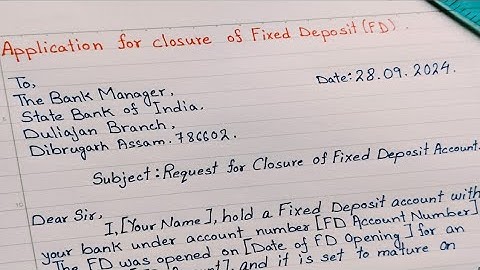 Application for closure of Fixed Deposit (FD).
To,
Date: 28.09.2024.
The Bank Manager,
State Bank of India.
Duliajan Branch,
Dibrugarh Assam. 786602.
Subject: Request for Closure of Fixed Deposit Account.
Dear Sir,
I, [Your Name], hold a Fixed Deposit account with
your bank under account number [FD Account Number]
The FD was opened on [Date of FD Opening] for an
and it is set to mature on